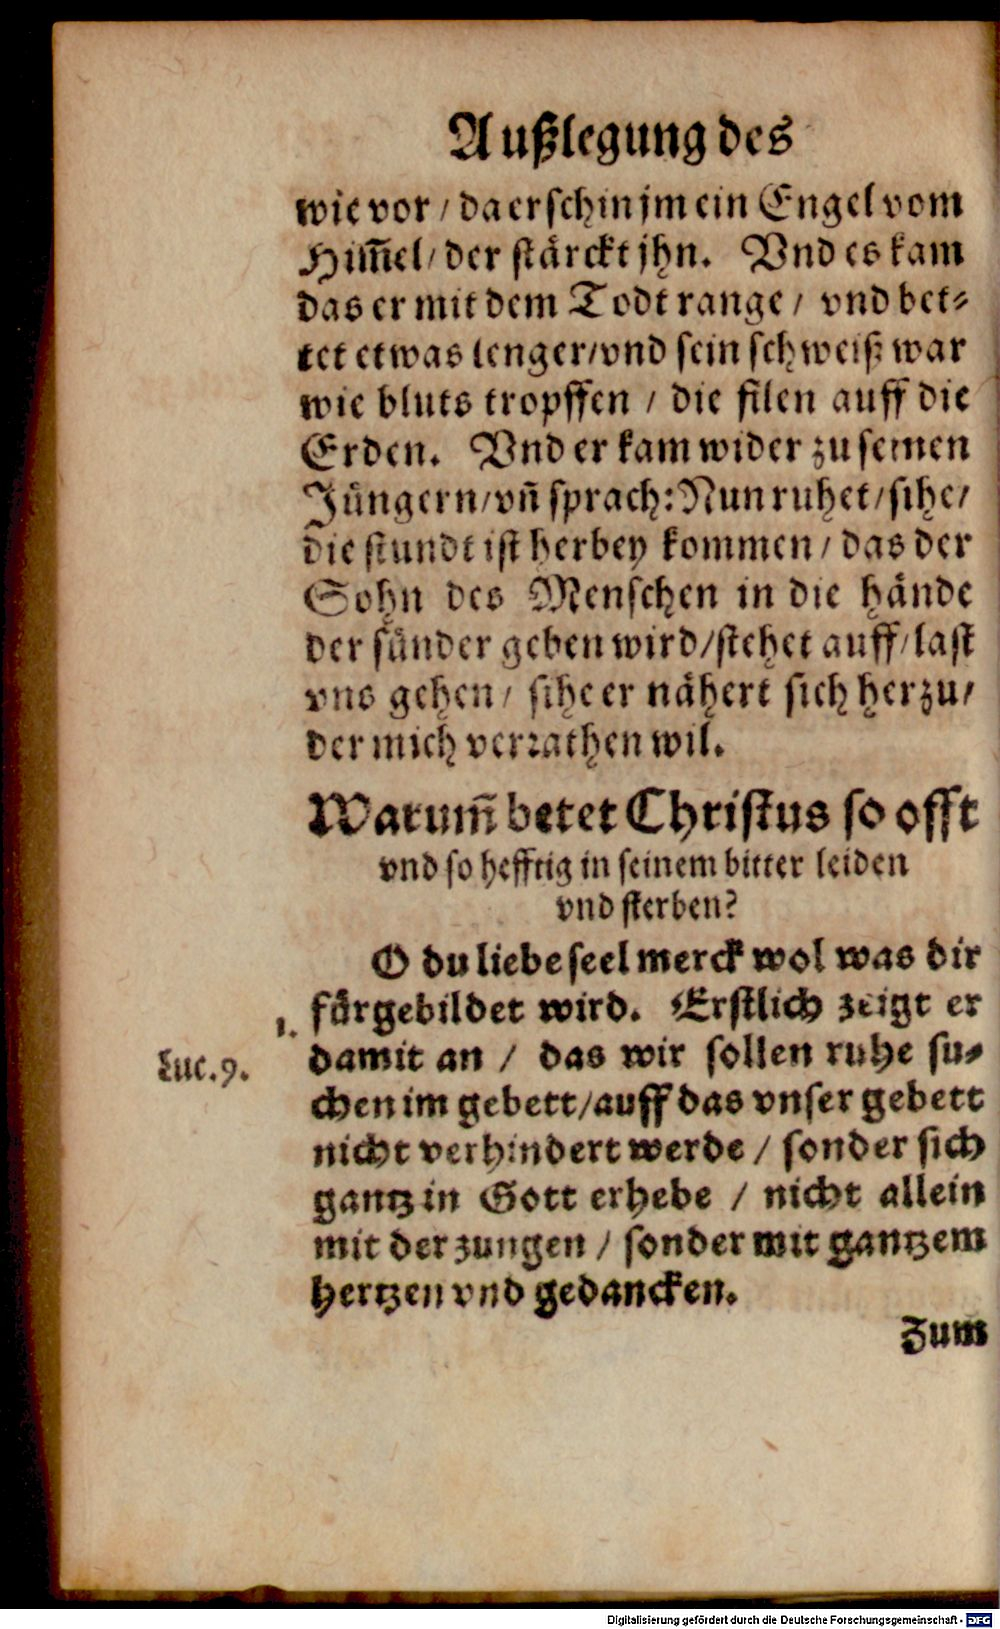 Außlegung des
wie vor / da erschin jm ein Engel vom
Him̅el / der stärckt jhn. Vnd es kam
das er mit dem Todt range / vnd bet-
tet etwas lenger / vnd sein schweiß war
wie bluts tropffen / die filen auff die
Erden. Vnd er kam wider zu seinen
Jüngern / vn̅ sprach: Nun ruhet / sihe /
die stundt ist herbey kommen / das der
Sohn des Menschen in die hände
der sünder geben wird / stehet auff / last
vns gehen / sihe er nähert sich herzu /
der mich verrathen wil.
Warum̅ betet Christus so offt
vnd so hefftig in seinem bitter leiden
vnd sterben?
O du liebe seel merck wol was dir
fürgebildet wird. Erstlich zeigt er
1.
damit an / das wir sollen ruhe su-
Luc. 9.
chen im gebett / auff das vnser gebett
nicht verhindert werde / sonder sich
gantz in Gott erhebe / nicht allein
mit der zungen / sonder mit gantzem
hertzen vnd gedancken.
Zum
Digitalisierung gefördert durch die Deutsche Forschungsgemeinschaft - DFG